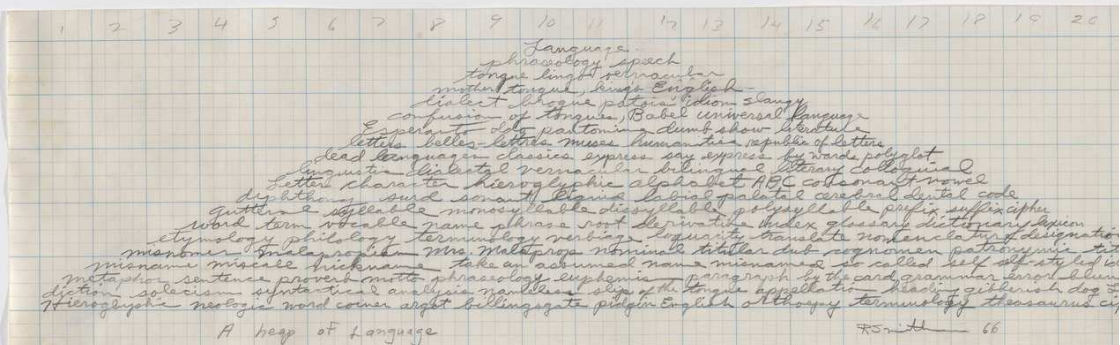 1 2 3 4 5 6 7 8 9 10 11 12 13 14 15 16 17 18 19 20
Language
phraseology speech
tongue lingo vernacular
mother tongue, king's English
dialect brogue patois idiom slangy
confusion of tongues, Babel universal language
Esperanto pantomime dumb show literature
letters belles-lettres muses humanities republic of letters
dead languages classics express say express by words polyglot
linguistic dialectal vernacular bilingual literary colloquial
letters character hieroglyphic alphabet ABC consonant vowel
diphthong surd sonant liquid labial palatal cerebral dental code
guttural syllable monosyllable dissyllable polysyllable prefix suffix cipher
word term vocable name phrase root derivative index glossary dictionary lexicon
etymology philology terminology verbiage loquacity translate nomenclature designation
misnomer malapropism Mrs Malaprop nominal titular dub cognomen patronymic
misname miscall nickname take an assumed name misnamed so called self styled
metaphor sentence proverb motto phraseology euphemism paragraph by the card grammar error
diction solecism syntactical analysis nameless slip of the tongue appellation heading gibberish dog
Hieroglyphic neologic word coiner argot billingsgate pidgin English orthoepy terminology thesaurus
A heap of Language
RSmithson 66